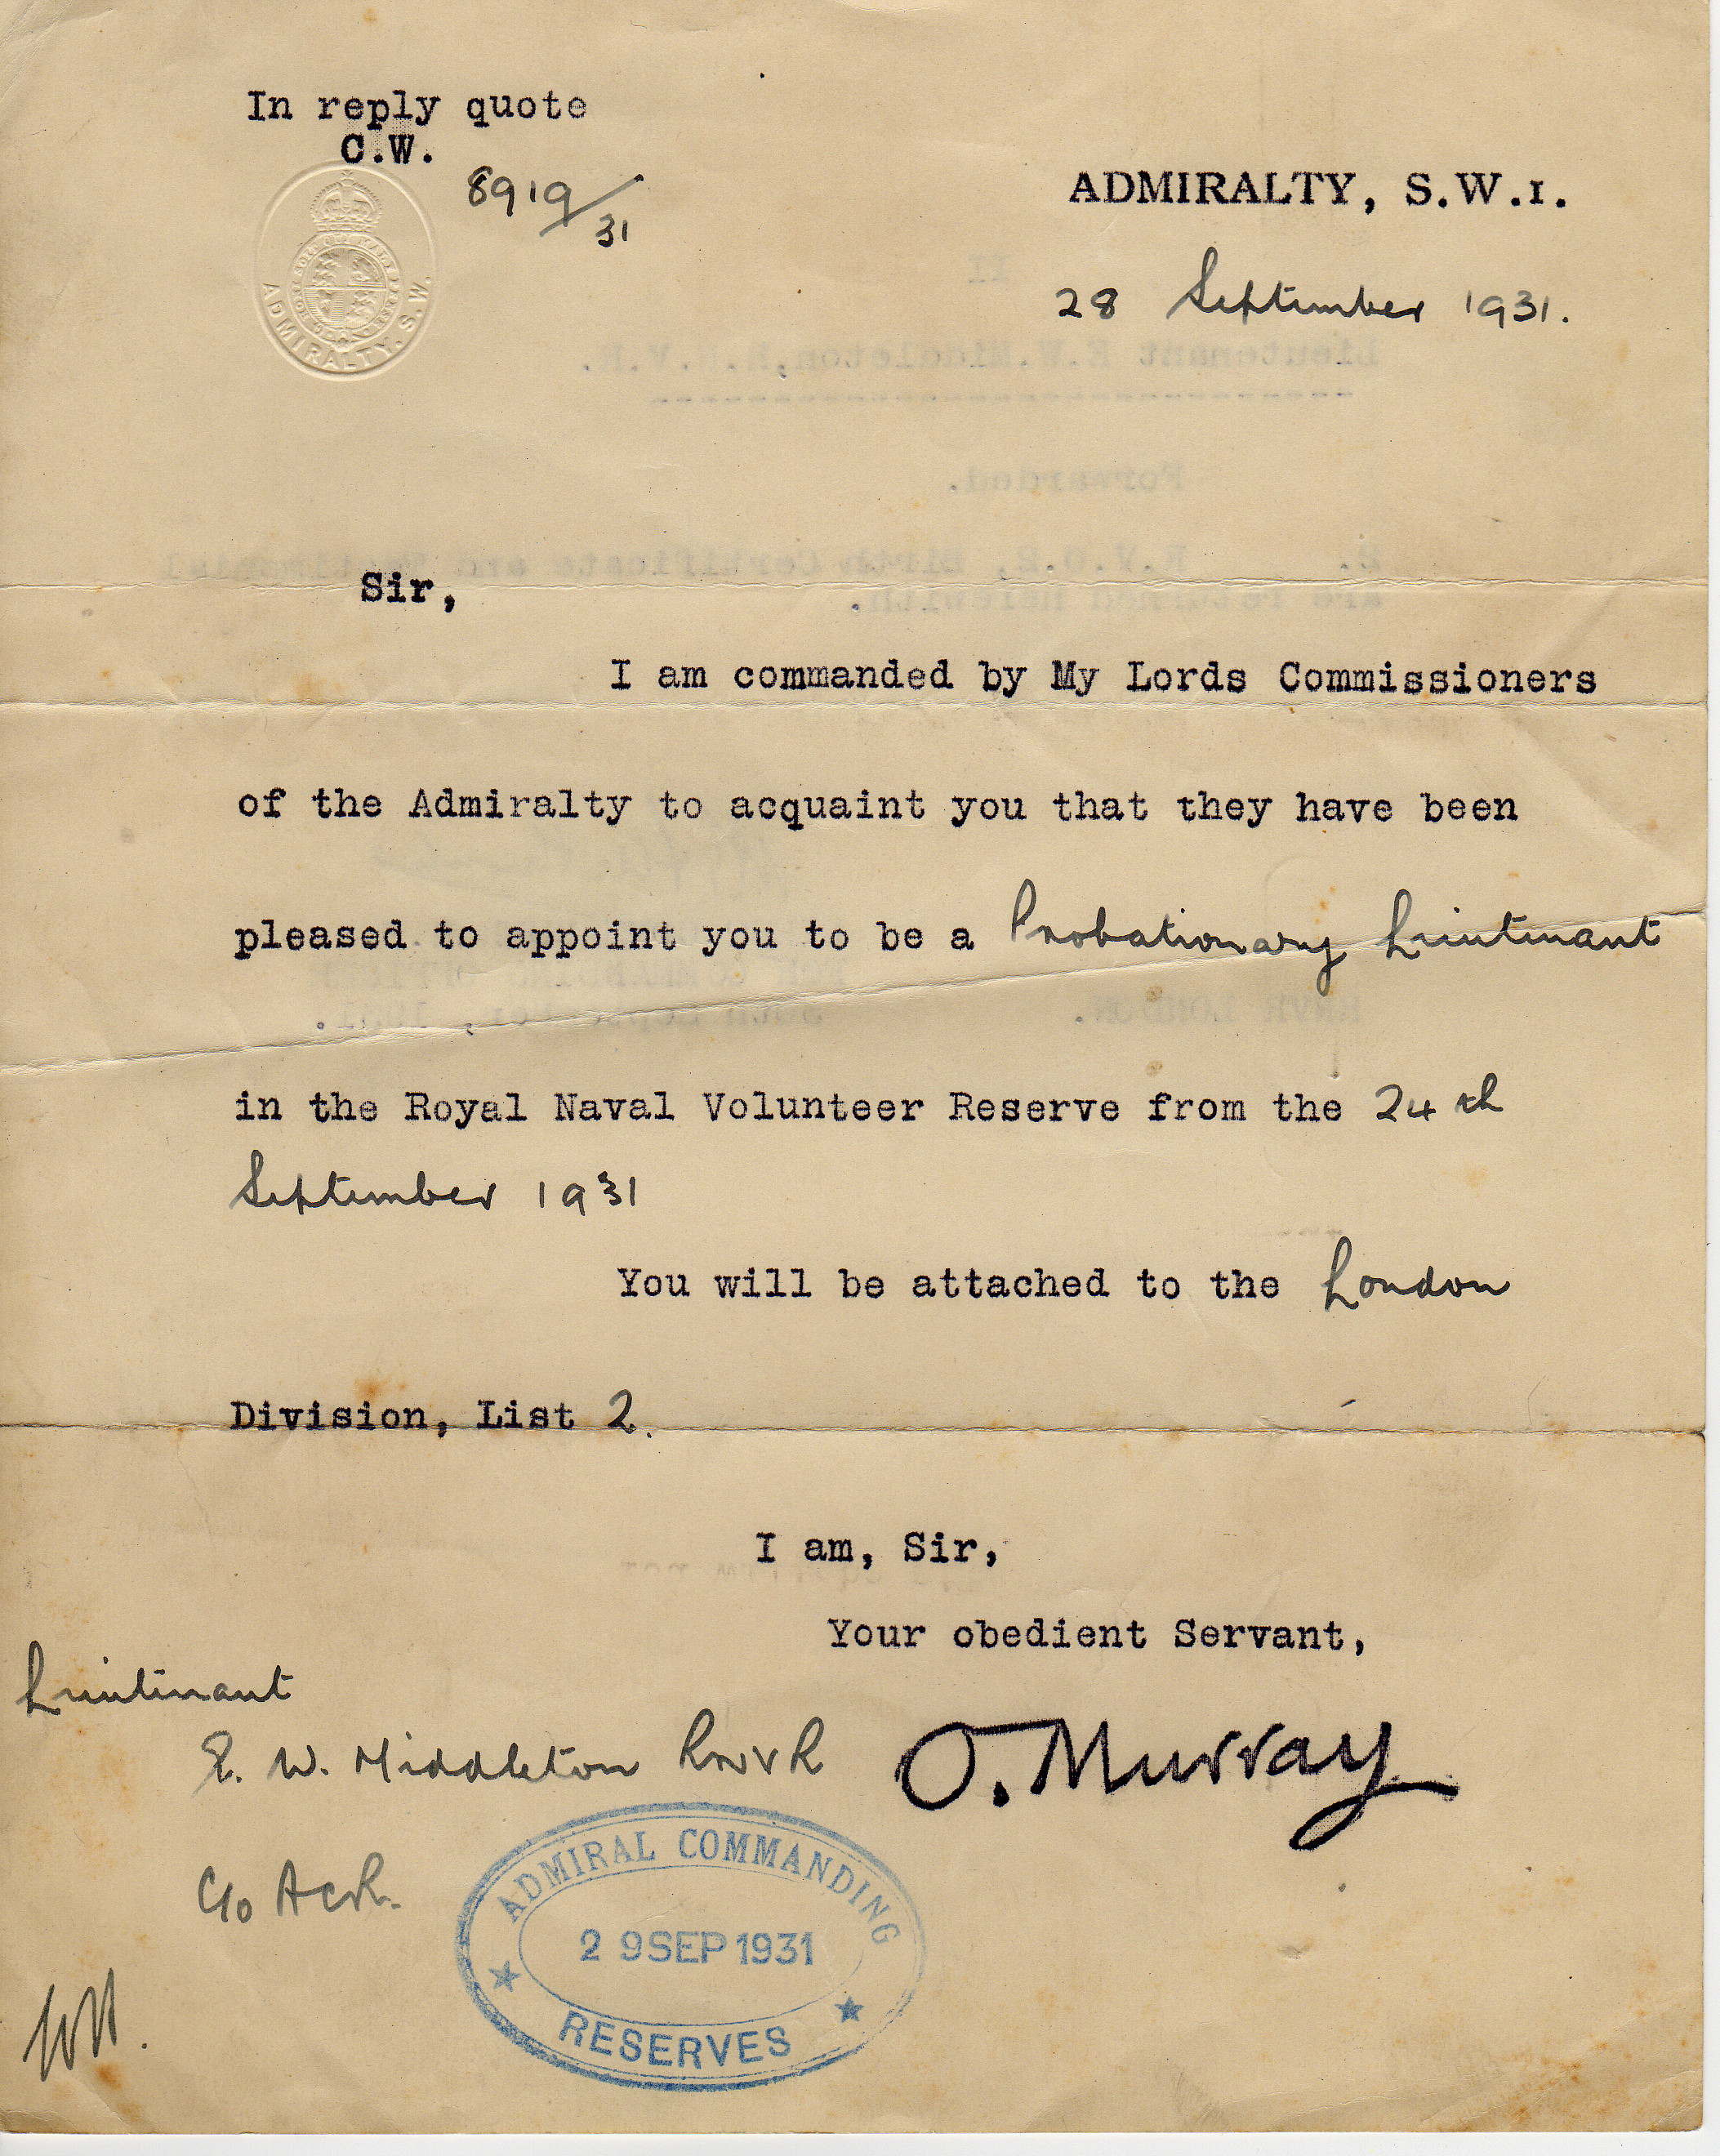 In reply quote
C.W.
8919/31
ADMIRALTY, S.W.
ADMIRALTY, S.W.1.
28 September 1931.
Sir,
I am commanded by My Lords Commissioners
of the Admiralty to acquaint you that they have been
pleased to appoint you to be a Probationary Lieutenant
in the Royal Naval Volunteer Reserve from the 24th
September 1931
You will be attached to the London
Division, List 2.
I am, Sir,
Your obedient Servant,
O. Murray
Lieutenant
E. W. Middleton RNVR
C/o ACR.
ADMIRAL COMMANDING
29 SEP 1931
RESERVES